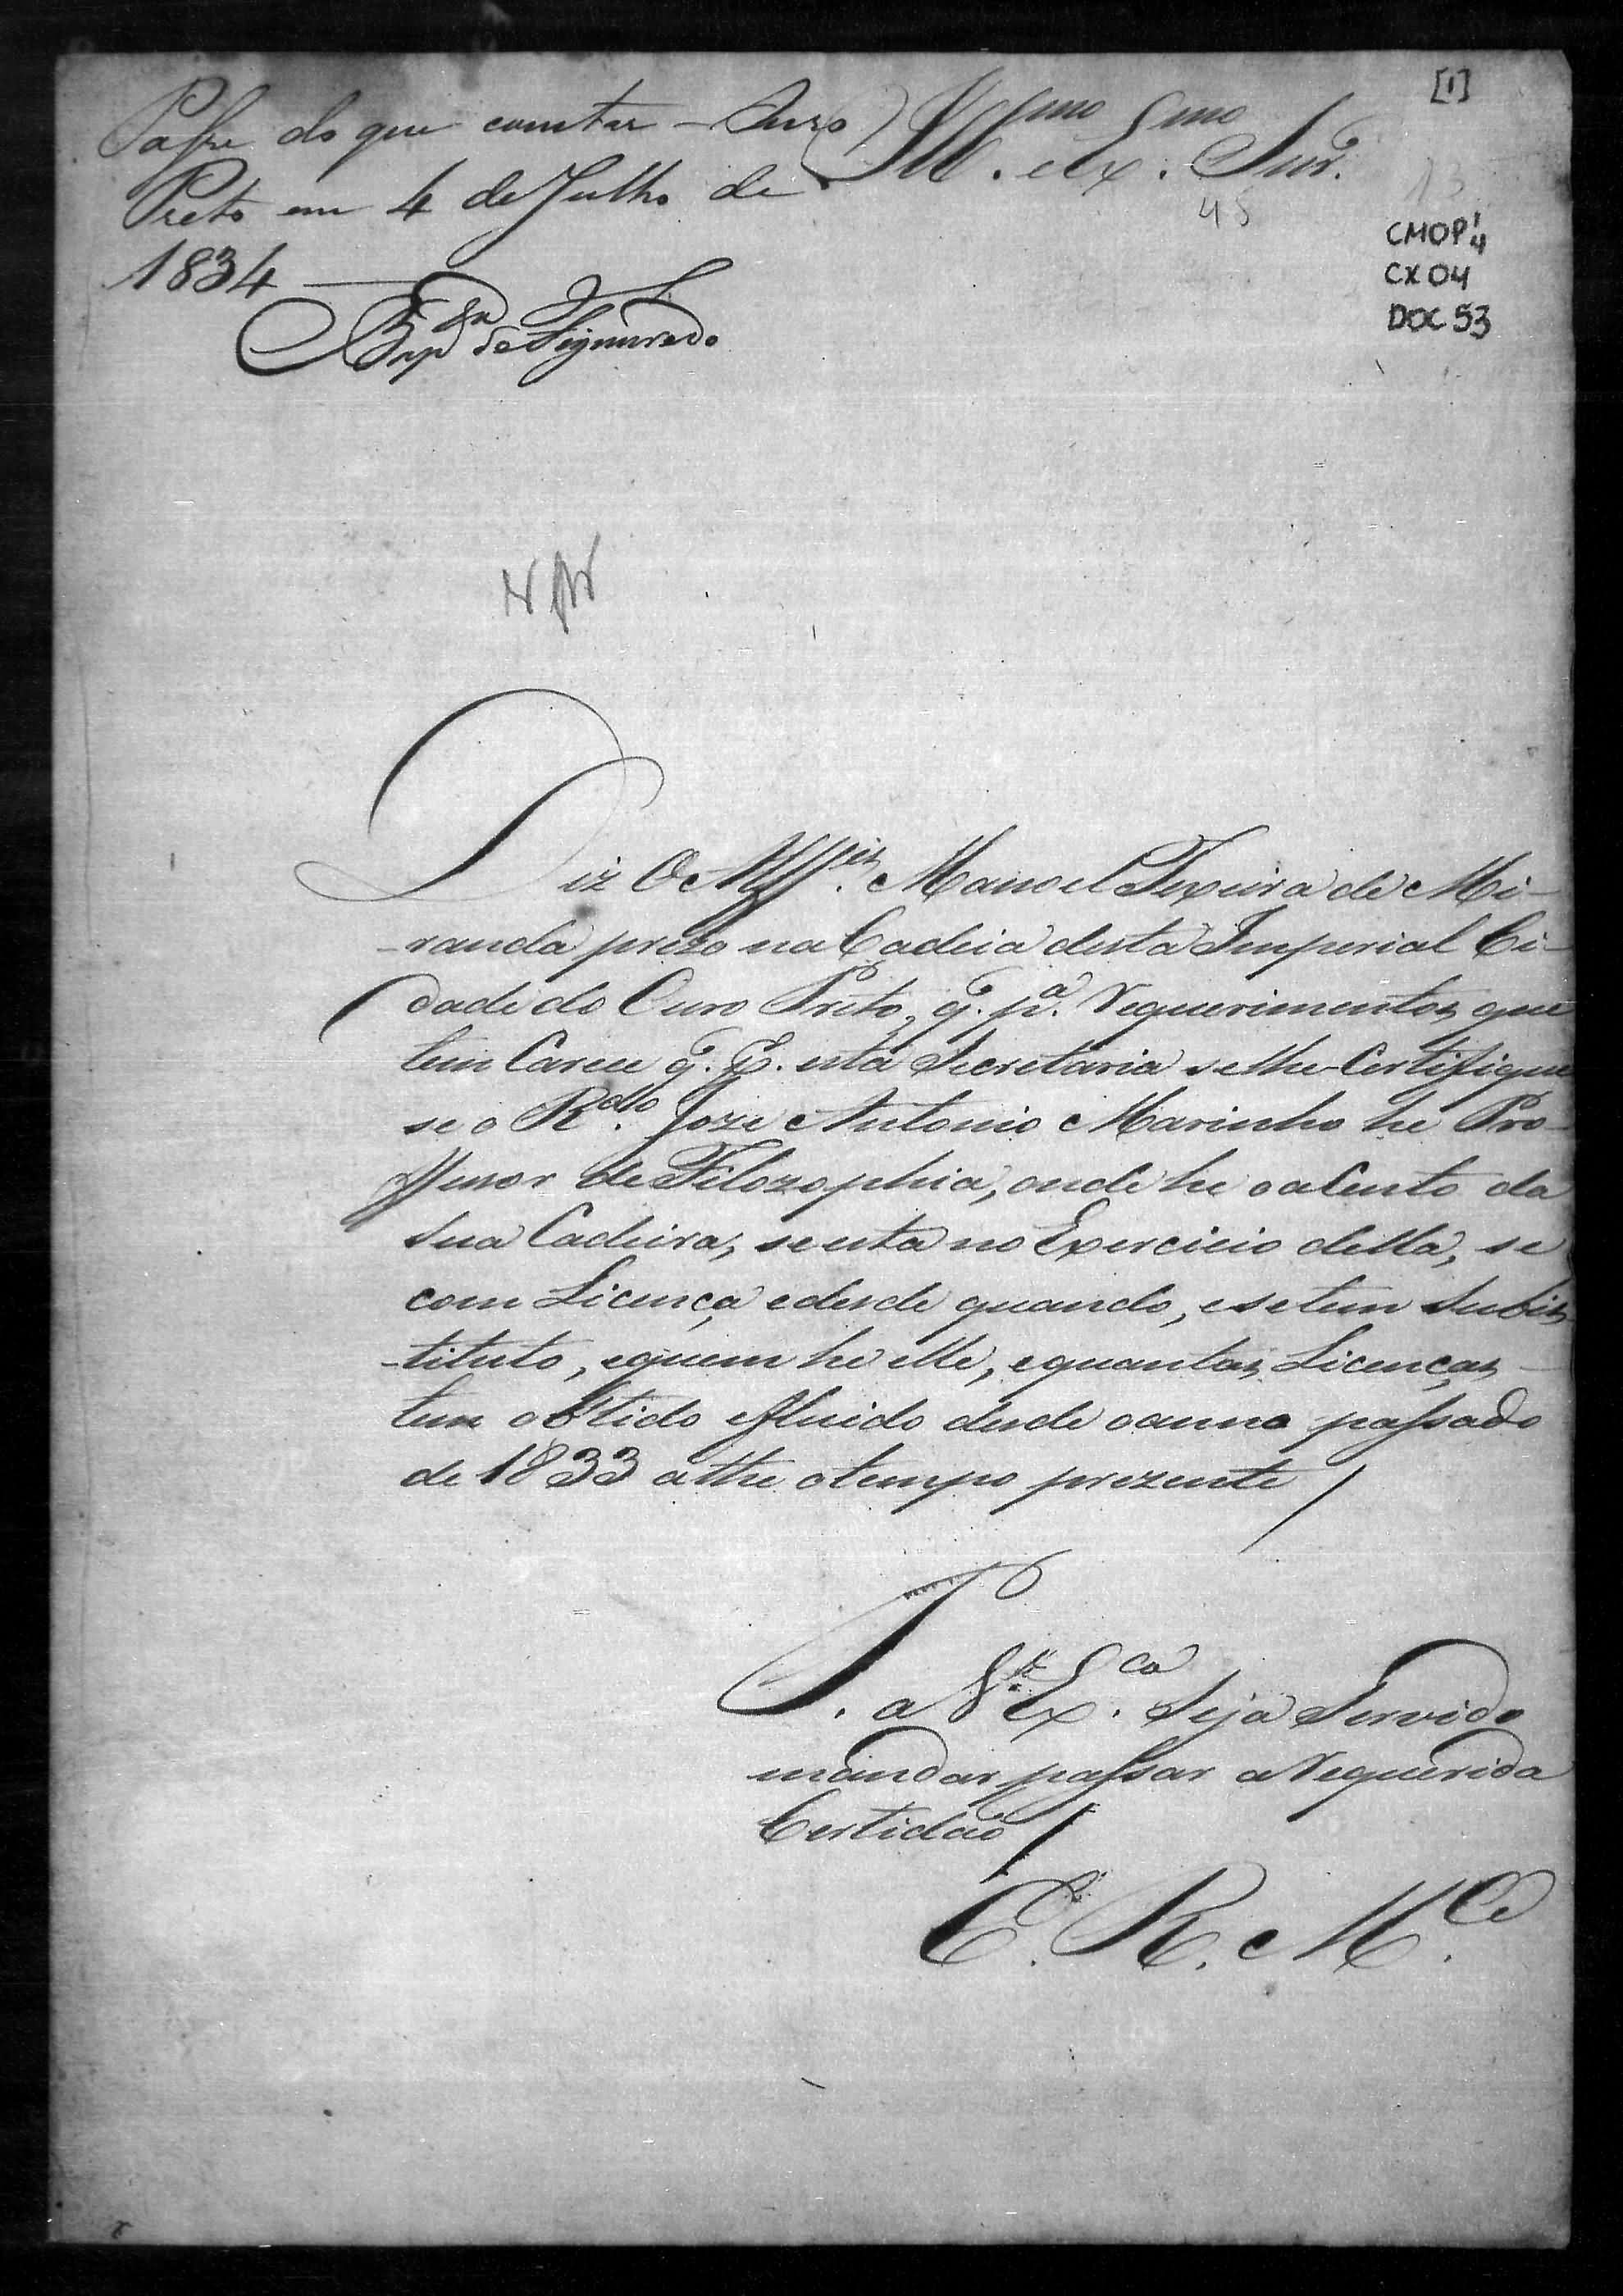 [1]
Passe do que constar - Ouro
Preto em 4 de Julho de
1834
de Figueiredo
Ill.mo e Ex.mo Snr.
45
13
CMOP 1/4
CX 04
DOC 53
Diz O Alfs. Manoel Texeira de Mi-
-randa prezo na Cadeia desta Imperial Ci-
dade do Ouro Preto, q. p.a Requerimentos que
tem Carece q. P. esta Secretaria se lhe Certifique
se o R.do Joze Antonio Marinho he Pro-
ffessor de Filozophia, onde he o aCento da
sua Cadeira, se esta no Exercicio della, se
com Licença e desde quando, e se tem Subis
-tituto, e quem he elle, e quantas Licenças
tem obtido e fluido desde o anno passado
de 1833 athe o tempo prezente /
P. a V. Ex.ca Seja Servido
mandar passar a Requerida
Certidão /
E. R. M.ce